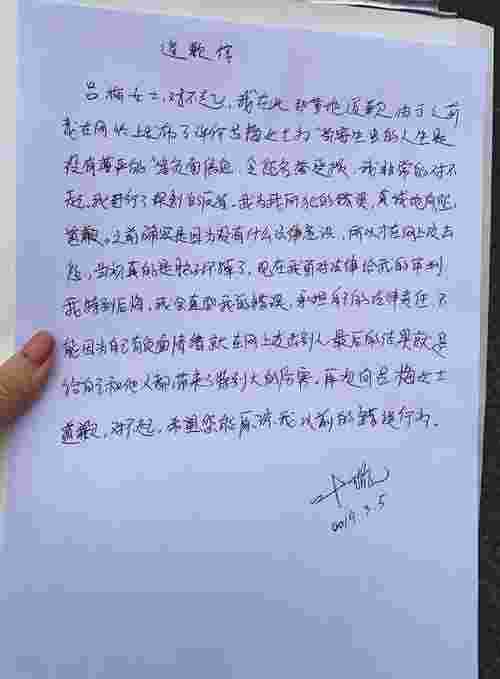 道歉信
吕梅女士,对不起,我在此郑重地道歉,由于之前
我在网上发布了评价吕梅女士为"寄生虫的人生是
没有尊严的"等负面信息,令您名誉受损,我非常的对不
起,我进行了深刻的反省,我为我所犯的错误,真诚地向您
道歉。之前确实是因为没有什么法律意识,所以才在网上攻击
您,当初真的是脑子坏掉了,现在我面对法律给我的审判
我特别后悔,我会直面我的错误,承担自己的法律责任,不
能因为自己有负面情绪就在网上攻击别人,最后的结果就是
给自己和他人都带来了特别大的伤害,再次向吕梅女士
道歉,对不起,希望您能原谅我以前的错误行为。
2019.3.5